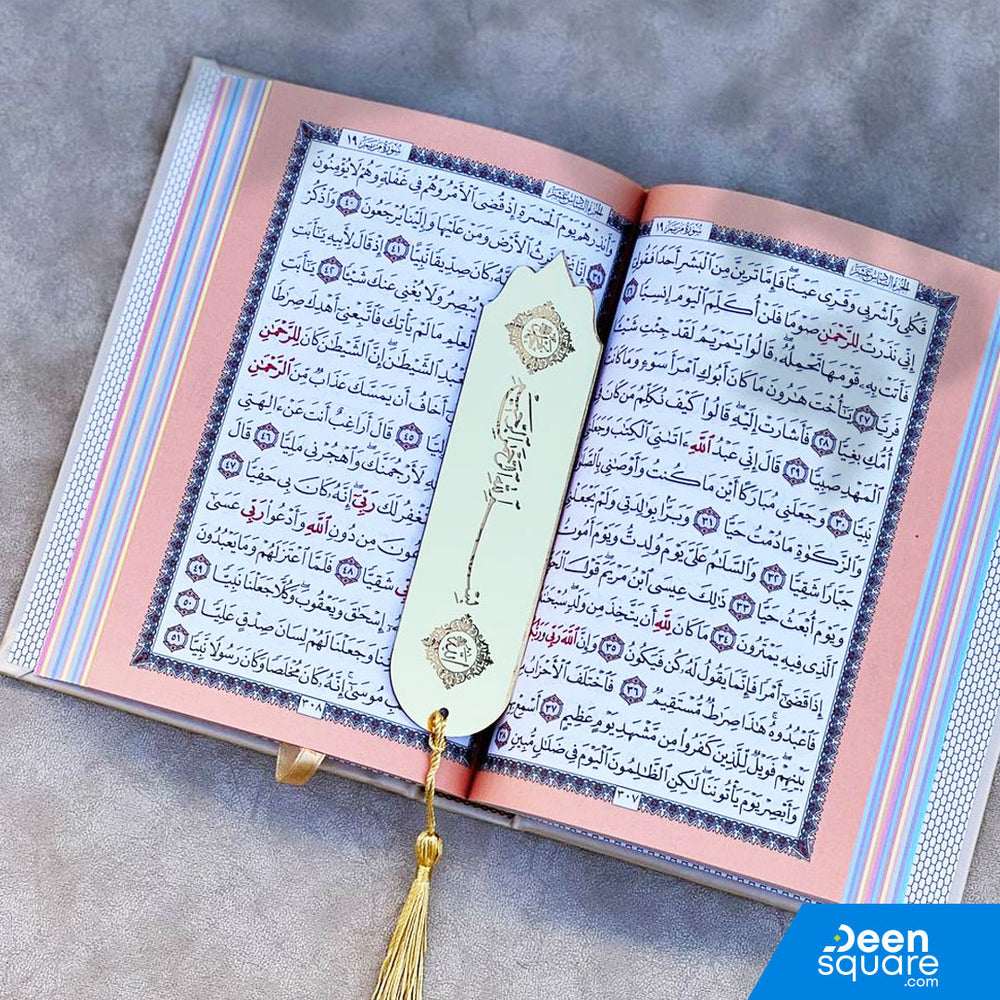 سُورَةُ مَرْيَمَ ١٩
الجُزْءُ السَّادِسَ عَشَرَ
فَكُلِي وَٱشْرَبِي وَقَرِّي عَيْنًا فَإِمَّا تَرَيِنَّ مِنَ ٱلْبَشَرِ أَحَدًا فَقُولِي
إِنِّي نَذَرْتُ لِلرَّحْمَٰنِ صَوْمًا فَلَنْ أُكَلِّمَ ٱلْيَوْمَ إِنسِيًّا ٢٦
فَأَتَتْ بِهِۦ قَوْمَهَا تَحْمِلُهُۥ قَالُوا۟ يَٰمَرْيَمُ لَقَدْ جِئْتِ شَيْـًٔا
فَرِيًّا ٢٧ يَٰٓأُخْتَ هَٰرُونَ مَا كَانَ أَبُوكِ ٱمْرَأَ سَوْءٍ وَمَا كَانَتْ
أُمُّكِ بَغِيًّا ٢٨ فَأَشَارَتْ إِلَيْهِ قَالُوا۟ كَيْفَ نُكَلِّمُ مَن كَانَ
ٱلْمَهْدِ صَبِيًّا ٢٩ قَالَ إِنِّي عَبْدُ ٱللَّهِ ءَاتَىٰنِيَ ٱلْكِتَٰبَ
نَبِيًّا ٣٠ وَجَعَلَنِي مُبَارَكًا أَيْنَ مَا كُنتُ وَأَوْصَٰنِي
وَٱلزَّكَوٰةِ مَا دُمْتُ حَيًّا ٣١ وَبَرًّۢا بِوَٰلِدَتِي وَلَمْ
جَبَّارًا شَقِيًّا ٣٢ وَٱلسَّلَٰمُ عَلَيَّ يَوْمَ وُلِدتُّ وَيَوْمَ أَمُوتُ
وَيَوْمَ أُبْعَثُ حَيًّا ٣٣ ذَٰلِكَ عِيسَى ٱبْنُ مَرْيَمَ قَوْلَ
ٱلَّذِي فِيهِ يَمْتَرُونَ ٣٤ مَا كَانَ لِلَّهِ أَن يَتَّخِذَ مِن وَلَدٍ
إِذَا قَضَىٰٓ أَمْرًا فَإِنَّمَا يَقُولُ لَهُۥ كُن فَيَكُونُ ٣٥ وَإِنَّ ٱللَّهَ رَبِّي وَرَبُّكُمْ
فَٱعْبُدُوهُ هَٰذَا صِرَٰطٌ مُّسْتَقِيمٌ ٣٦ فَٱخْتَلَفَ ٱلْأَحْزَابُ
بَيْنِهِمْ فَوَيْلٌ لِّلَّذِينَ كَفَرُوا۟ مِن مَّشْهَدِ يَوْمٍ عَظِيمٍ ٣٧ أَسْمِعْ
وَأَبْصِرْ يَوْمَ يَأْتُونَنَا لَٰكِنِ ٱلظَّٰلِمُونَ ٱلْيَوْمَ فِي ضَلَٰلٍ مُّبِينٍ ٣٨
٣٠٧
الجُزْءُ السَّادِسَ عَشَرَ
سُورَةُ مَرْيَمَ ١٩
وَأَنذِرْهُمْ يَوْمَ ٱلْحَسْرَةِ إِذْ قُضِيَ ٱلْأَمْرُ وَهُمْ فِي غَفْلَةٍ وَهُمْ لَا يُؤْمِنُونَ
٣٩ إِنَّا نَرِثُ ٱلْأَرْضَ وَمَنْ عَلَيْهَا وَإِلَيْنَا يُرْجَعُونَ ٤٠ وَٱذْكُرْ
كَانَ صِدِّيقًا نَّبِيًّا ٤١ إِذْ قَالَ لِأَبِيهِ يَٰٓأَبَتِ
يُبْصِرُ وَلَا يُغْنِي عَنكَ شَيْـًٔا ٤٢ يَٰٓأَبَتِ
ٱلْعِلْمِ مَا لَمْ يَأْتِكَ فَٱتَّبِعْنِيٓ أَهْدِكَ صِرَٰطًا
ٱلشَّيْطَٰنَ إِنَّ ٱلشَّيْطَٰنَ كَانَ لِلرَّحْمَٰنِ
أَخَافُ أَن يَمَسَّكَ عَذَابٌ مِّنَ ٱلرَّحْمَٰنِ
٤٥ قَالَ أَرَاغِبٌ أَنتَ عَنْ ءَالِهَتِي
لَأَرْجُمَنَّكَ وَٱهْجُرْنِي مَلِيًّا ٤٦ قَالَ
لَكَ رَبِّيٓ إِنَّهُۥ كَانَ بِي حَفِيًّا ٤٧
مِن دُونِ ٱللَّهِ وَأَدْعُوا۟ رَبِّي عَسَىٰٓ
شَقِيًّا ٤٨ فَلَمَّا ٱعْتَزَلَهُمْ وَمَا يَعْبُدُونَ
إِسْحَٰقَ وَيَعْقُوبَ وَكُلًّا جَعَلْنَا نَبِيًّا ٤٩
وَجَعَلْنَا لَهُمْ لِسَانَ صِدْقٍ عَلِيًّا ٥٠
مُوسَىٰٓ إِنَّهُۥ كَانَ مُخْلَصًا وَكَانَ رَسُولًا نَّبِيًّا ٥١
٣٠٨
الله
Deen
square
.com